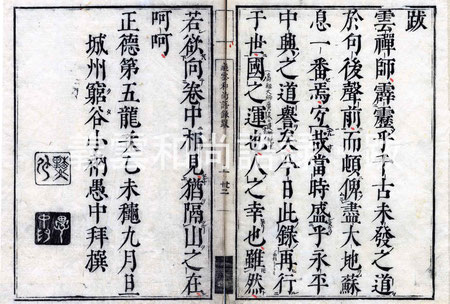 跋
雲禪師霹靂乎千古未發之道
於句後聲前而頓俾盡大地蘇
息一番焉宜哉當時盛乎永平
中興之道譽矣今日此錄再行
于世國之運也人之幸也雖然
義雲和尚語錄跋
若欲向卷中相見猶隔山之在
呵呵
正德第五龍次乙未穐九月日
城州窮谷小衲愚中拜撰